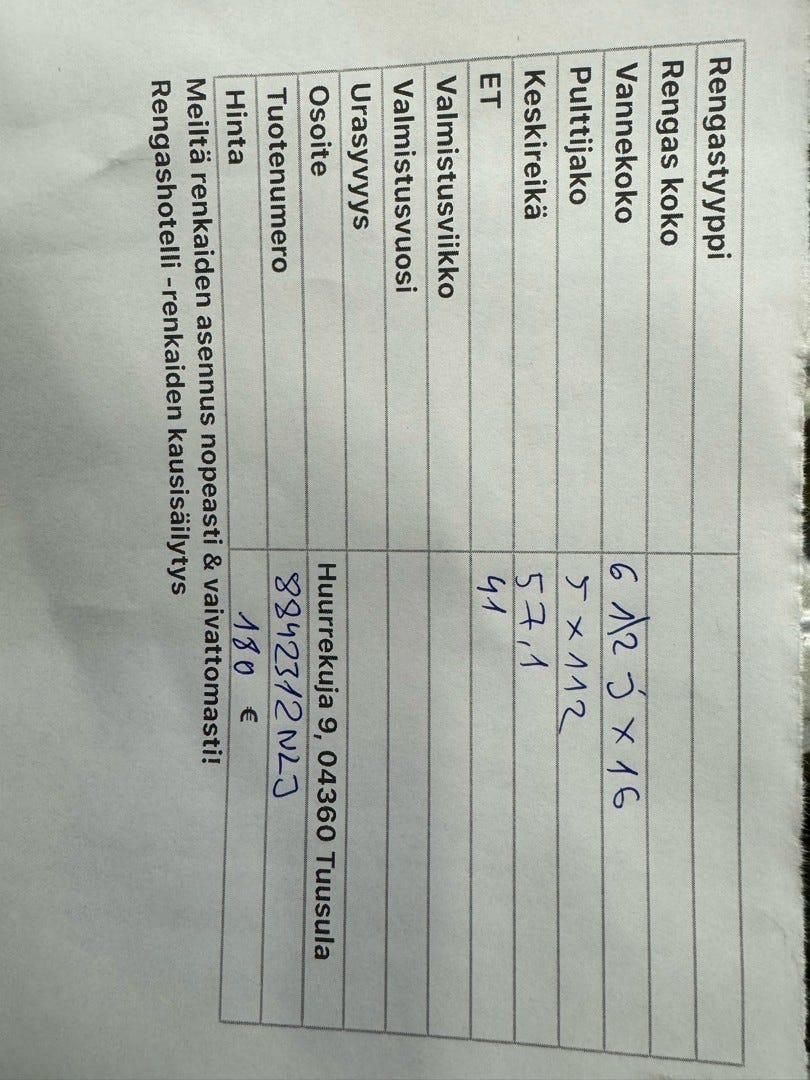 Rengastyyppi
Rengas koko
Vannekoko 6 1/2 J x 16
Pulttijako 5 x 112
Keskireikä 57,1
ET 41
Valmistusviikko
Valmistusvuosi
Urasyvyys
Osoite Huurrekuja 9, 04360 Tuusula
Tuotenumero 8842312NLJ
Hinta 180 €
Meiltä renkaiden asennus nopeasti & vaivattomasti!
Rengashotelli -renkaiden kausisäilytys